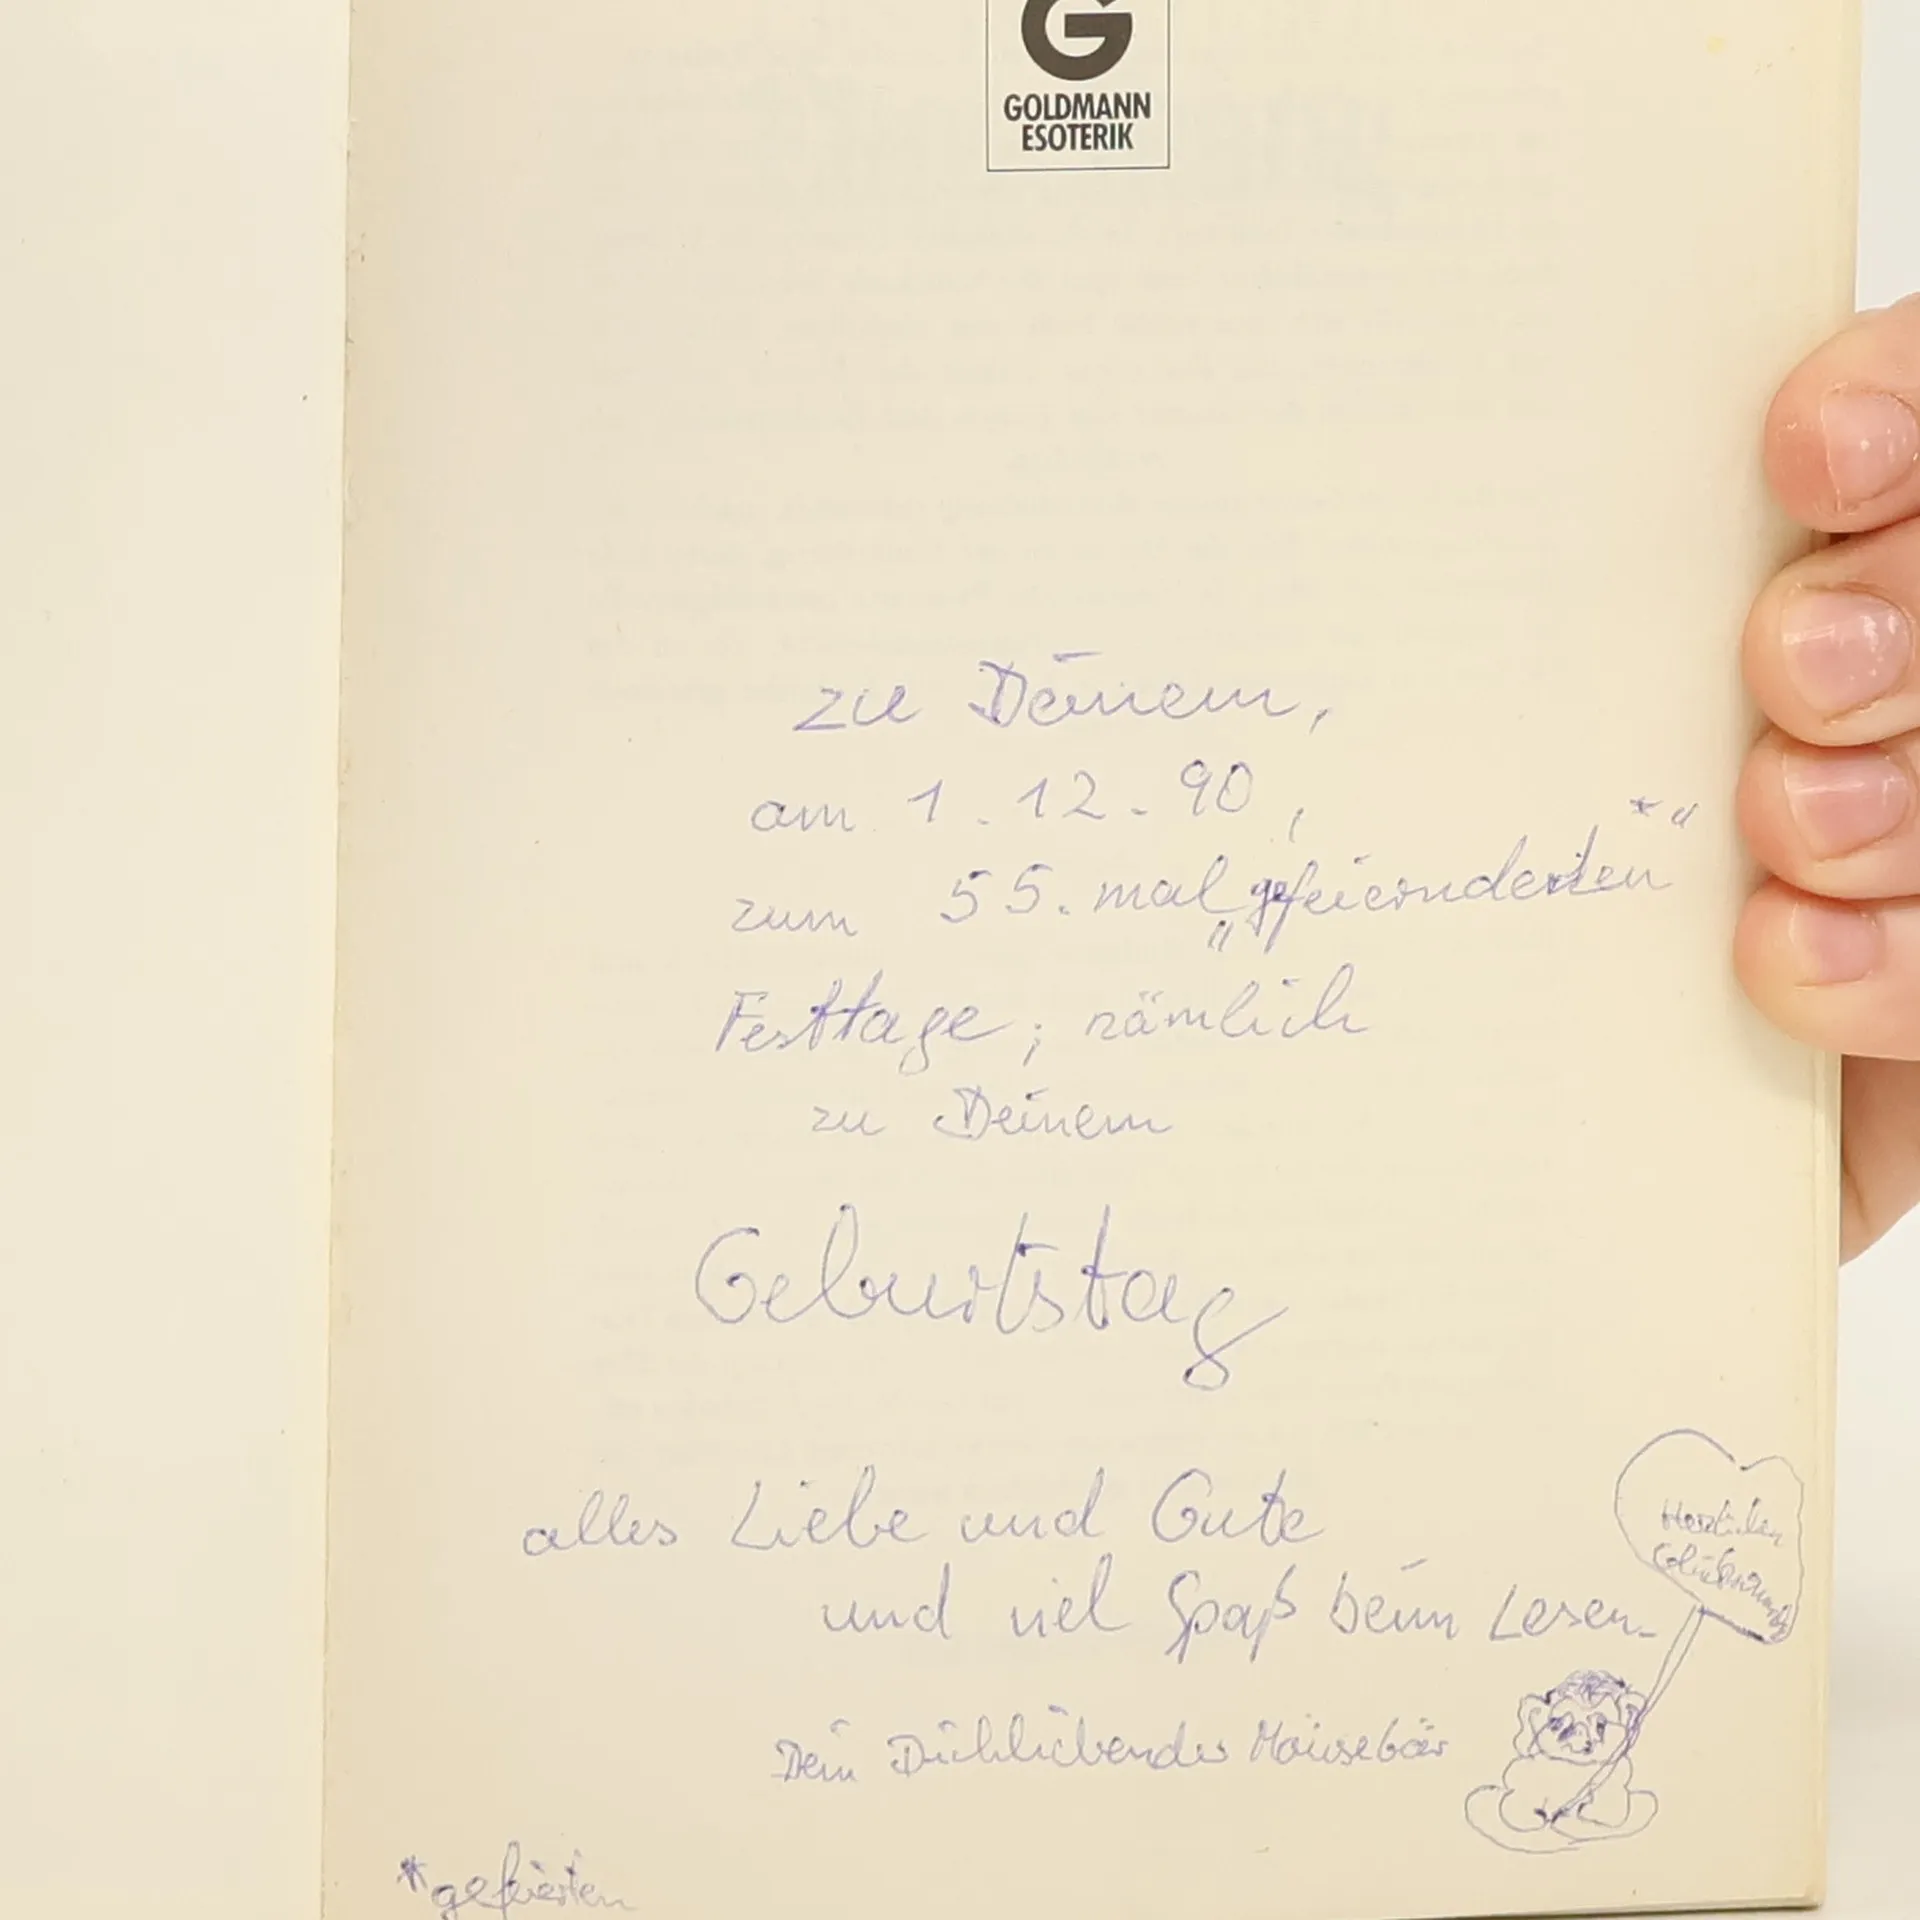 G
GOLDMANN
ESOTERIK
zu Deinem,
am 1.12.90,
zum 55. mal „gefeierndesten*“
Festtage; nämlich
zu Deinem
Geburtstag
alles Liebe und Gute
und viel Spaß beim Lesen.
Dein Dichliebender Mäusebär
Herzlichen
Glückwunsch
*gefeierten